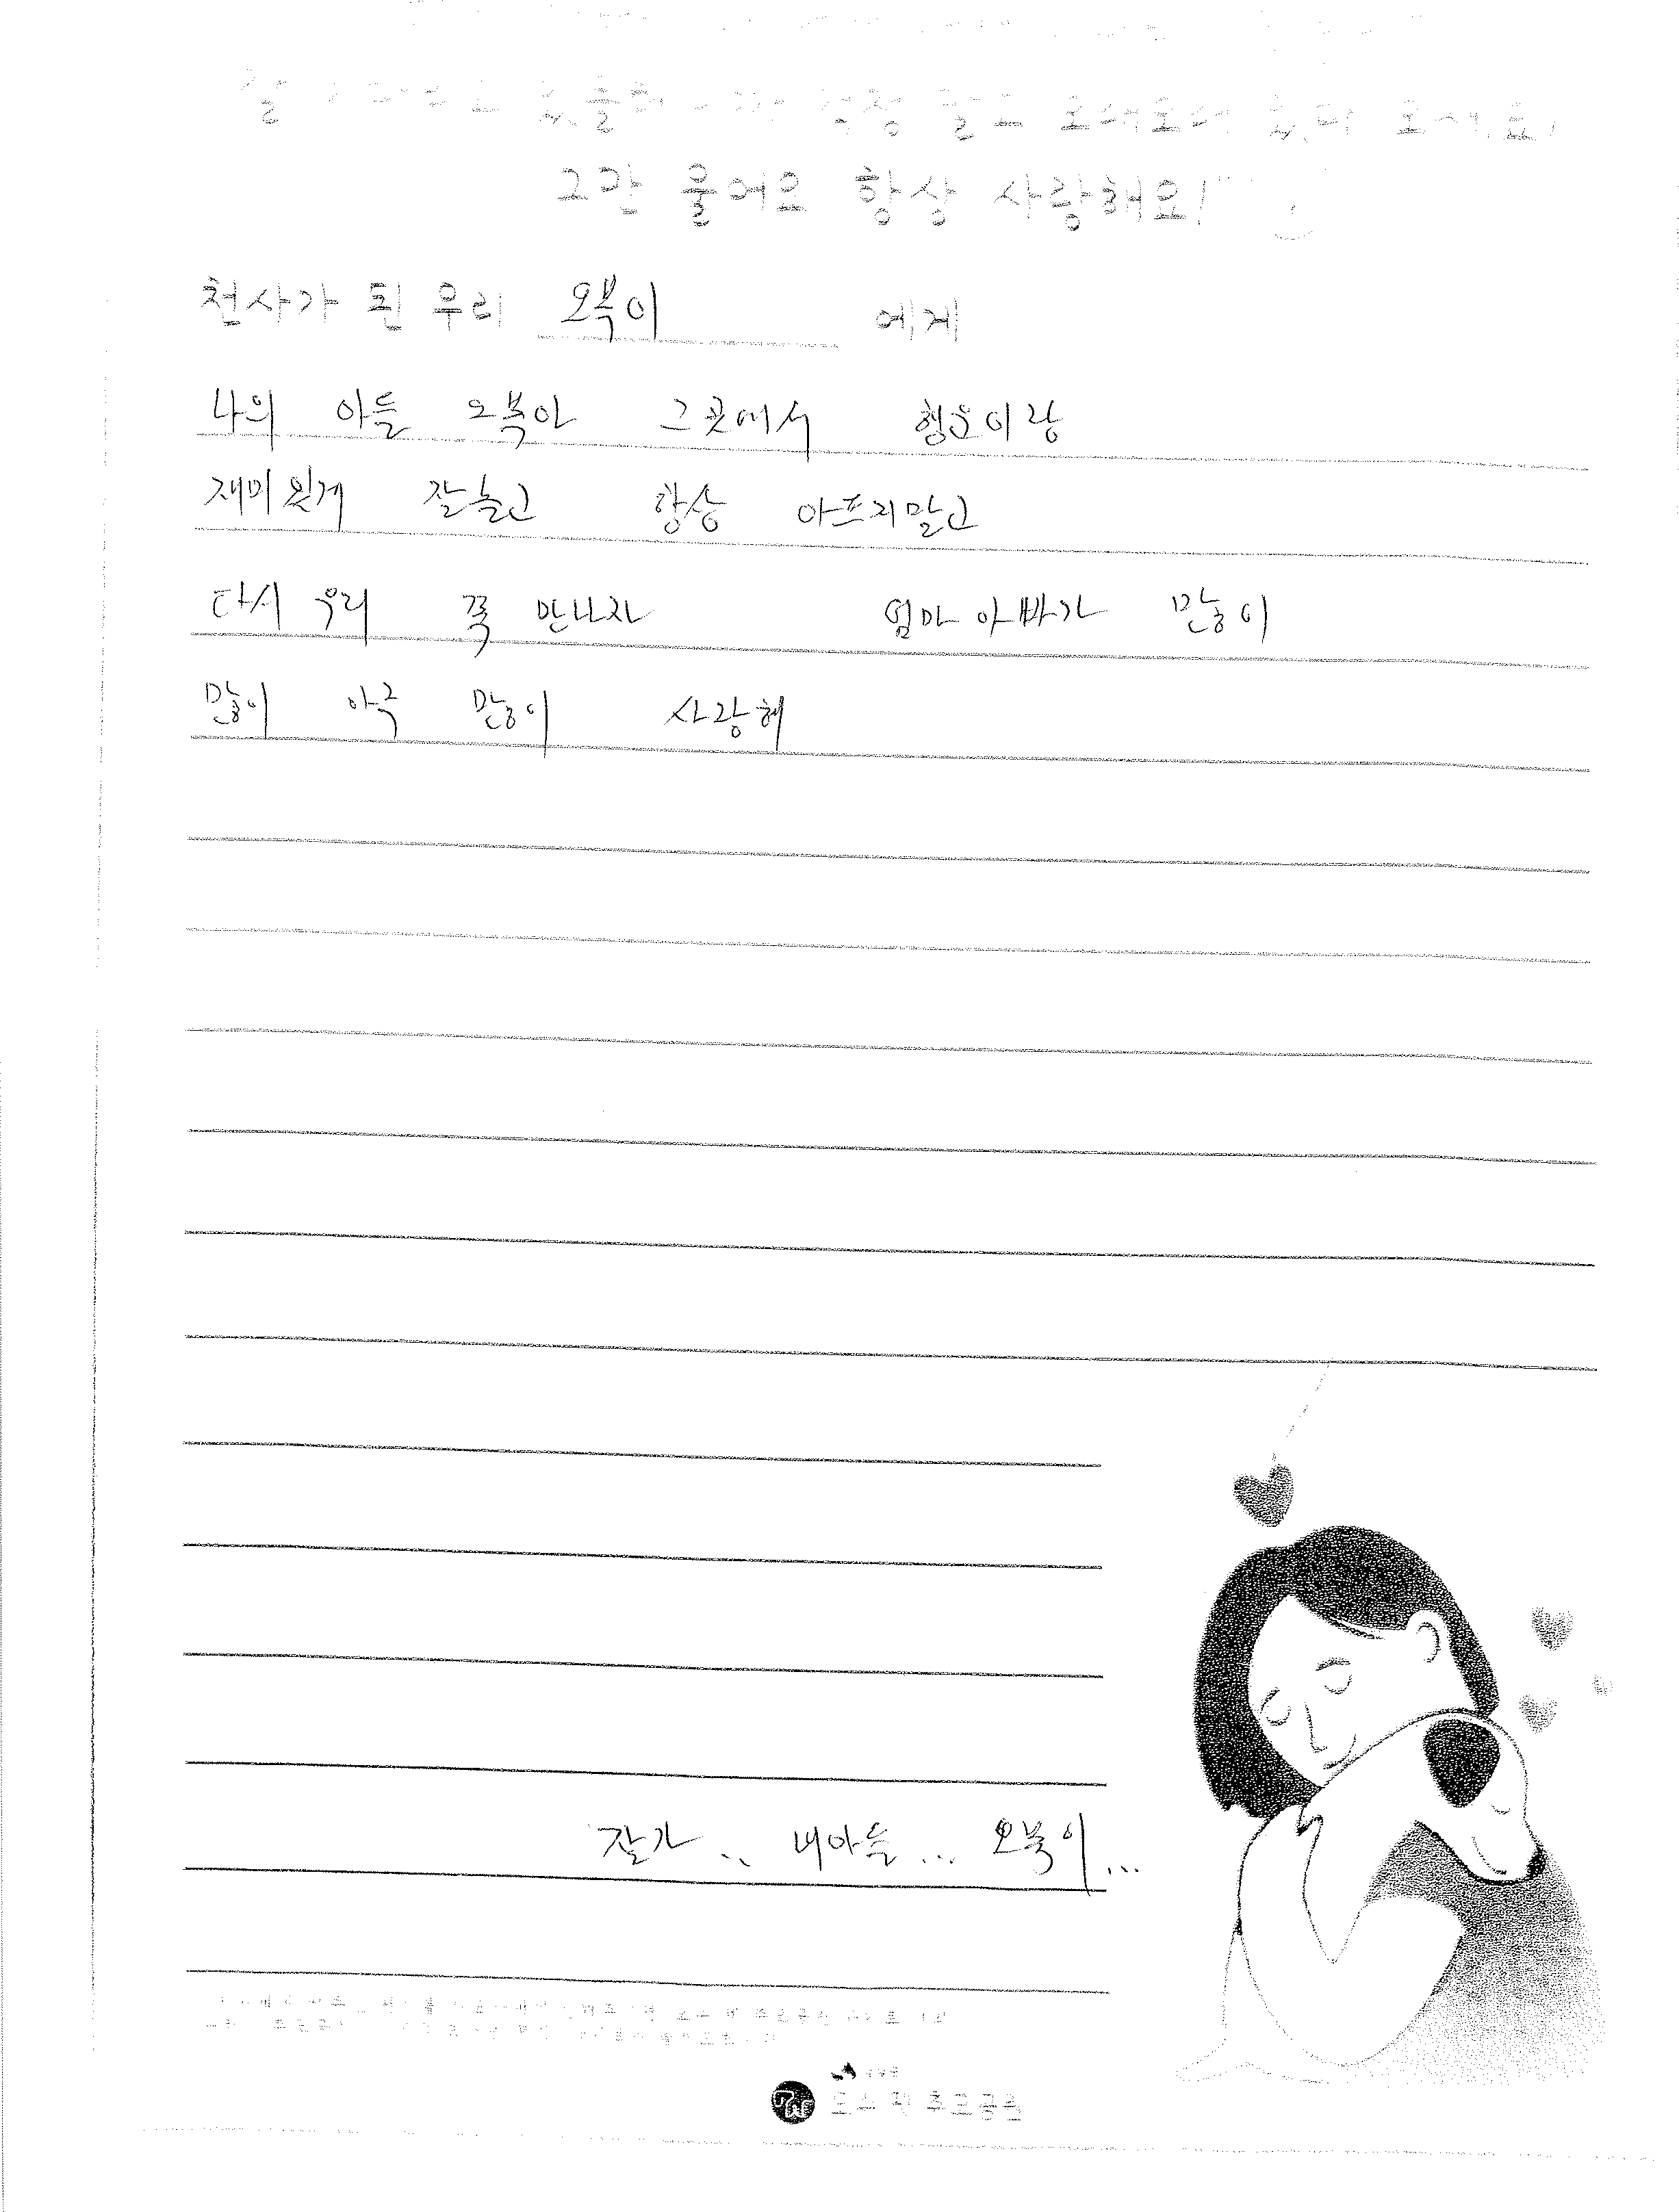 그만 울어요 항상 사랑해요!
천사가 된 우리 오복이 에게
나의 아들 오복아 그곳에서 행운이랑
재미있게 잘놀고 항상 아프지말고
다시 우리 꼭 만나자 엄마 아빠가 많이
많이 아주 많이 사랑해
잘가.. 내아들... 오복이...